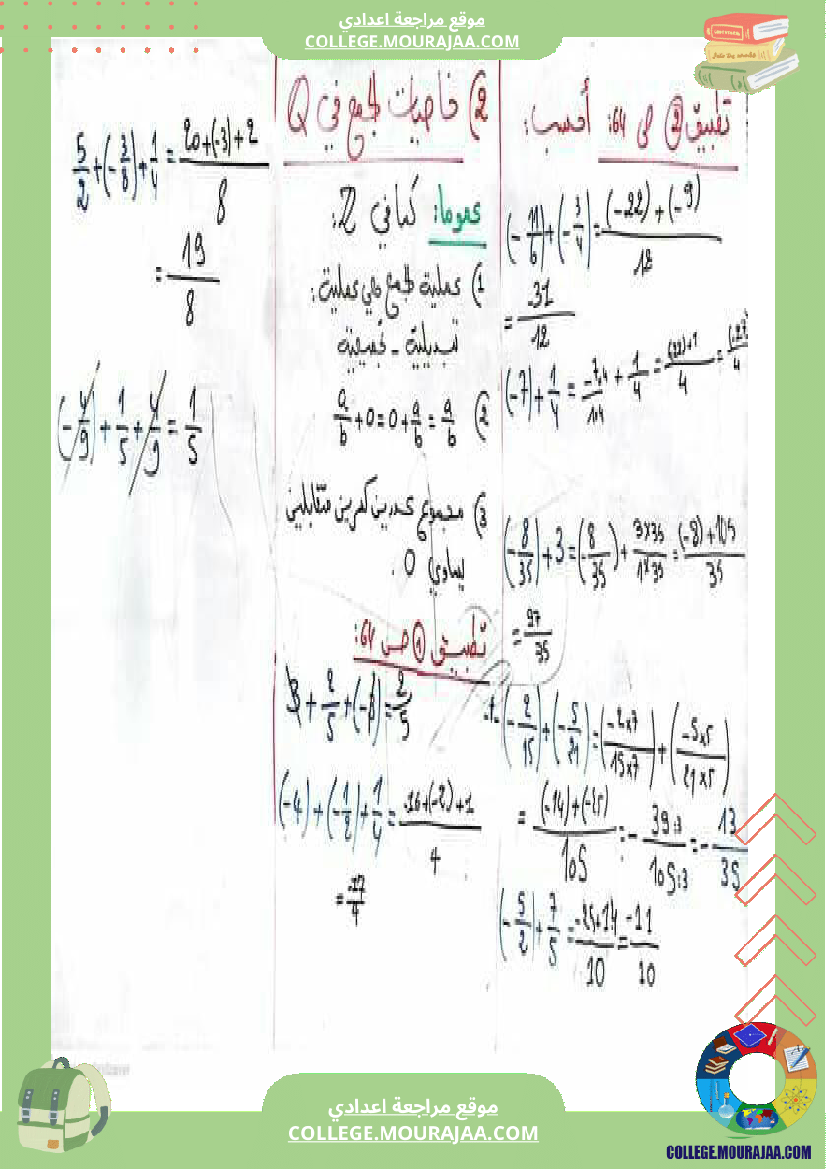 موقع مراجعة اعدادي
COLLEGE.MOURAJAA.COM
تطبيق ② ص 64: أحسب:
(-11/6)+(-3/4)=((-22)+(-9))/12
=-31/12
(-7)+1/4=-7×4/1×4+1/4=((-28)+1)/4=(-27)/4
(-8/35)+3=(-8/35)+3×35/1×35=((-8)+105)/35
=97/35
(-2/15)+(-5/21)=(-2×7/15×7)+(-5×5/21×5)
=((-14)+(-25))/105=-39:3/105:3=-13/35
(-5/2)+7/5=(-25+14)/10=-11/10
2) خاصيات الجمع في Q
عموما: كما في Z:
1) عملية الجمع هي عملية:
تبديلية - تجميعية
2) a/b+0=0+a/b=a/b
3) مجموع عددين كسريين متقابلين
يساوي 0.
تطبيق ① ص 64:
3+2/5+(-3)=2/5
(-4)+(-1/2)+1/4=(-16+(-2)+1)/4
=-17/4
5/2+(-3/8)+1/4=(20+(-3)+2)/8
=19/8
(-4/9)+1/5+4/9=1/5
موقع مراجعة اعدادي
COLLEGE.MOURAJAA.COM
COLLEGE.MOURAJAA.COM